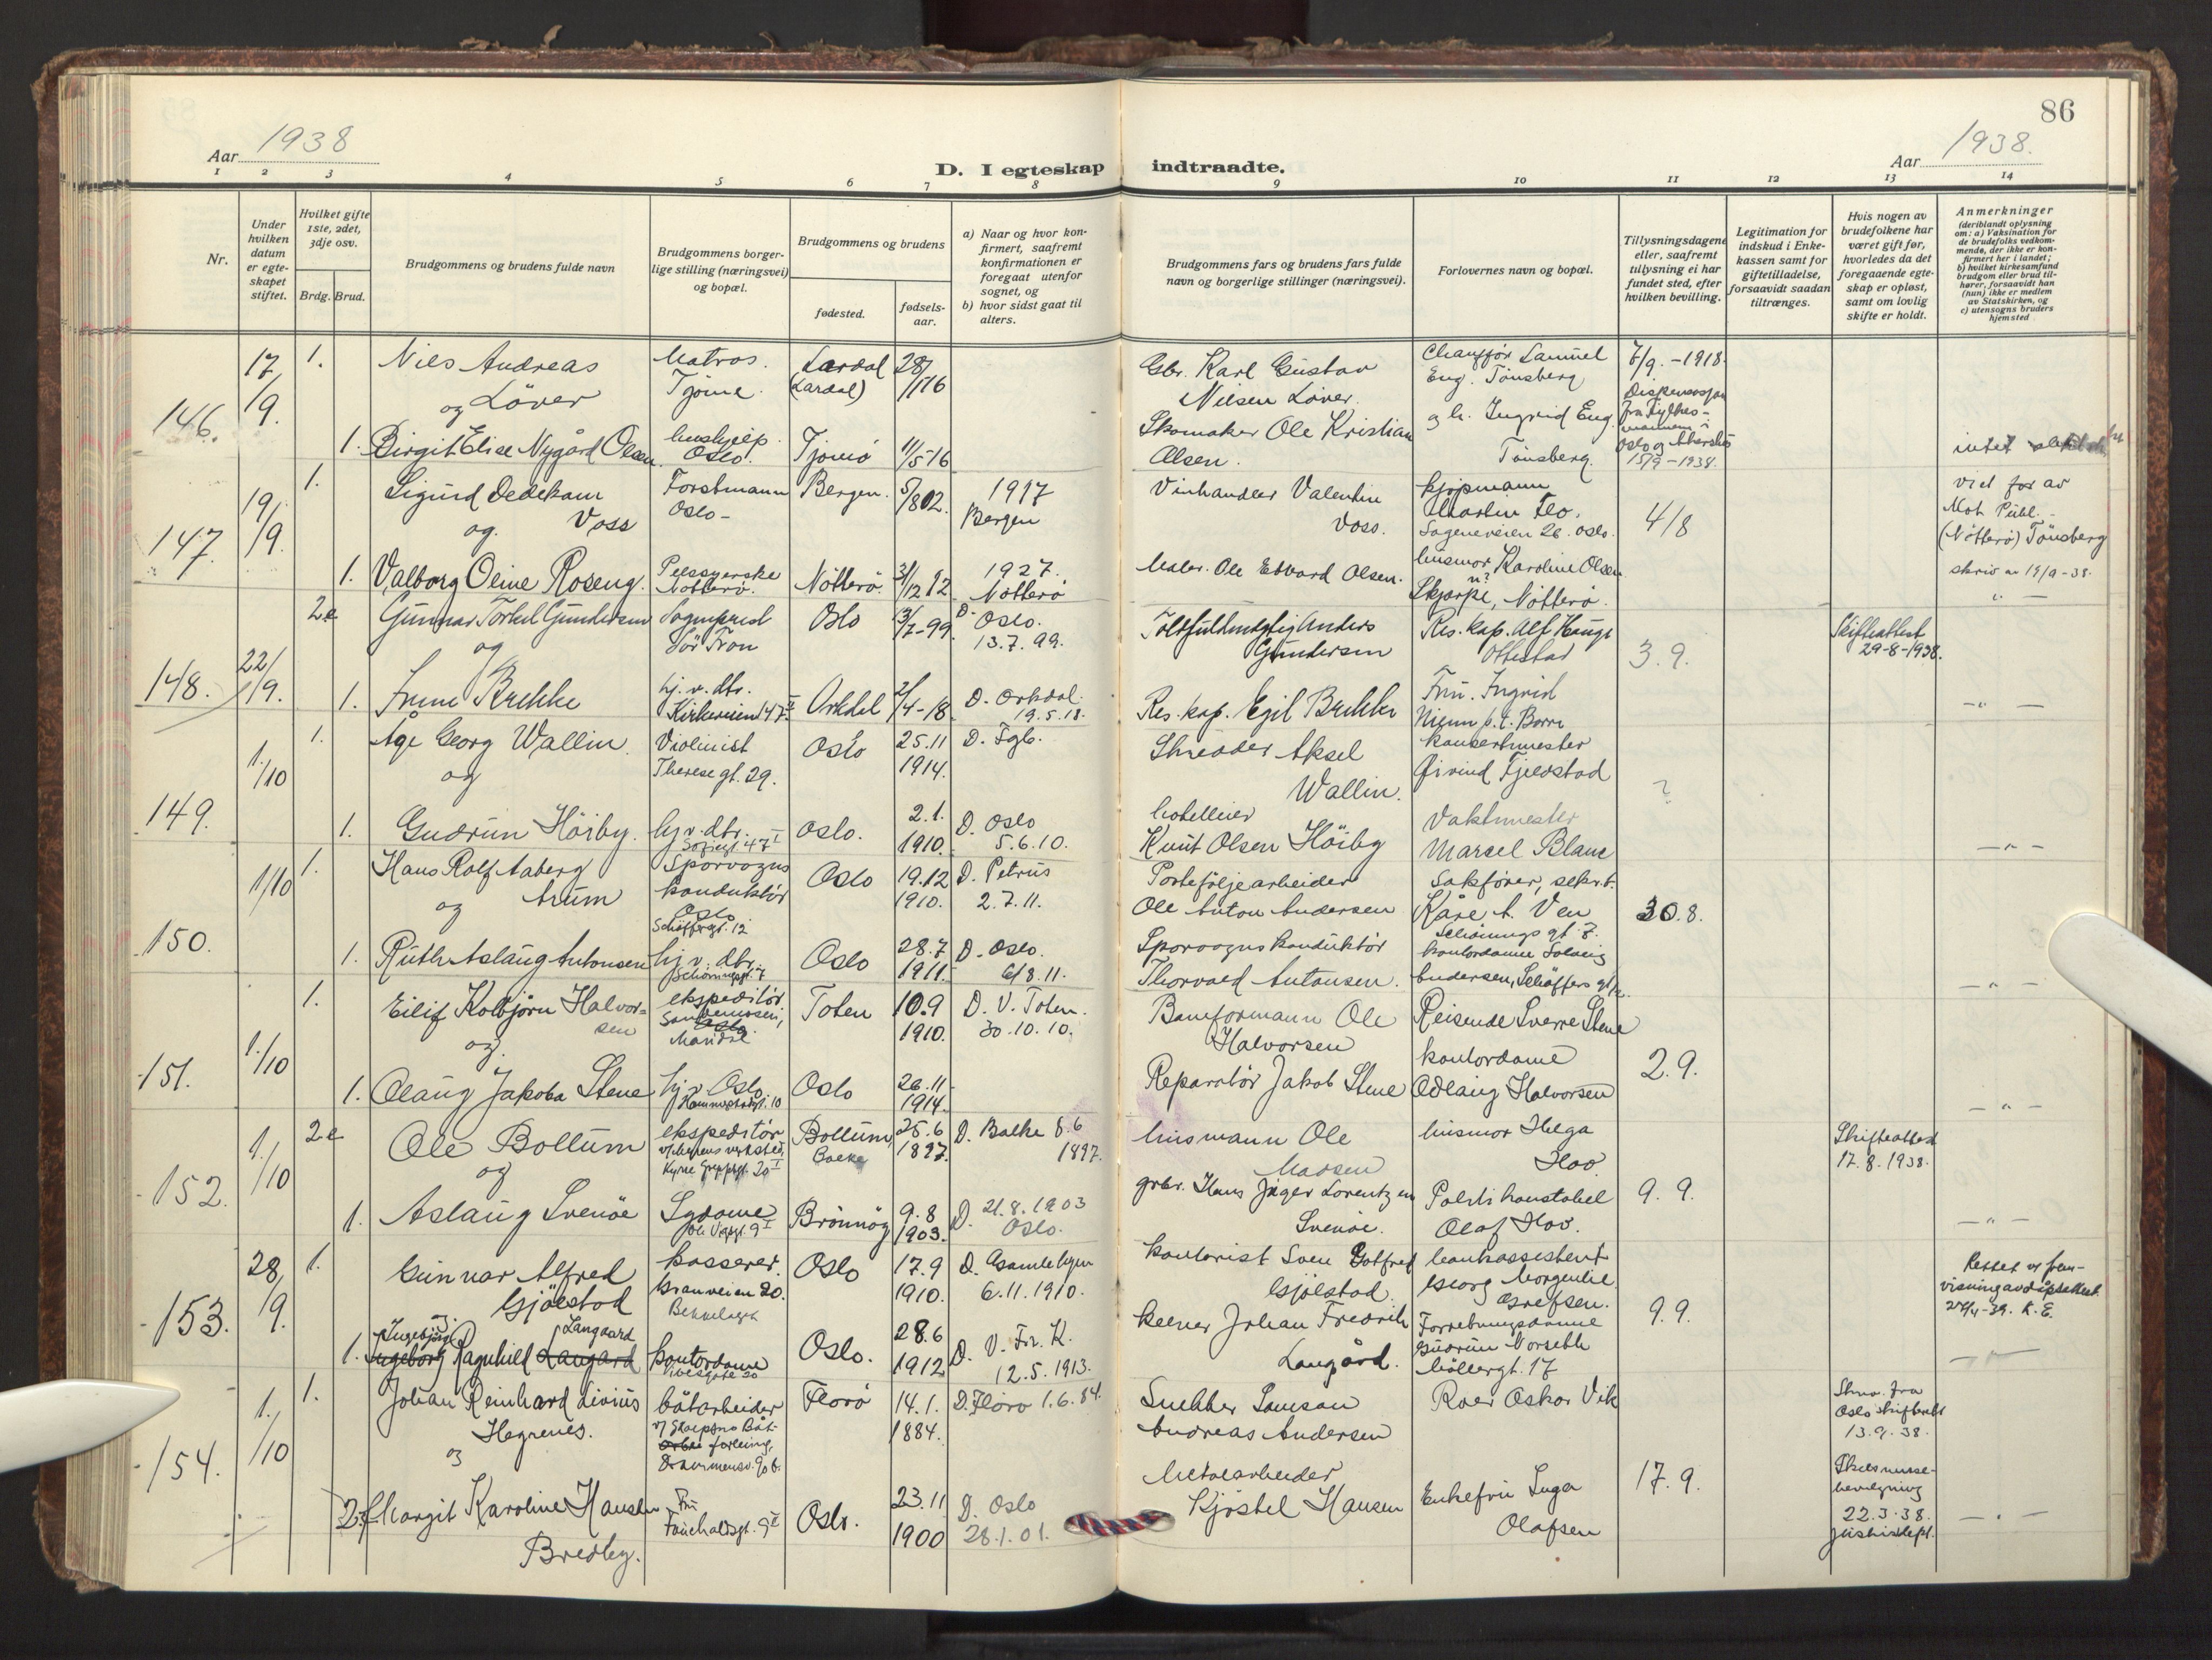 86
Aar 1938
D. I egteskap indtraadte.
Aar 1938.
1 2 3 4 5 6 7 8 9 10 11 12 13 14
Nr.
Under hvilken datum er egte-skapet stiftet.
Hvilket gifte 1ste, 2det, 3dje osv.
Brdg. Brud.
Brudgommens og brudens fulde navn
Brudgommens borger-lige stilling (næringsvei) og bopæl.
Brudgommens og brudens
fødested.
fødsels-aar.
a) Naar og hvor kon-firmert, saafremt konfirmationen er foregaat utenfor sognet, og
b) hvor sidst gaat til alters.
Brudgommens fars og brudens fars fulde navn og borgerlige stillinger (næringsvei).
Forlovernes navn og bopæl.
Tillysningsdagene eller, saafremt tillysning ei har fundet sted, efter hvilken bevilling.
Legitimation for indskud i Enke-kassen samt for giftetilladelse, forsaavidt saadan tiltrænges.
Hvis nogen av brudefolkene har været gift før, hvorledes da det foregaaende egte-skap er opløst, samt om lovlig skifte er holdt.
Anmerkninger
(deriblandt oplysning om: a) Vaksination for de brudefolks vedkom-mende, der ikke er kon-firmert her i landet; b) hvilket kirkesamfund brudgom eller brud til-hører, forsaavidt han (hun) ikke er medlem av Statskirken, og c) utensogns bruders hjemsted
146.
17/9.
1.
Niels Andreas
og Löver
Matros.
Tjöme.
Lardal
(Lardal)
28/1 16
Gbr. Karl Gustav
Nilsen Löver.
Chaufför Samuel
Eng. Tönsberg
7/9. - 1918.
Dispensasjon
fra Fylkes-
mannen i
Oslo og Akershus
15/9 - 1938.
1.
Birgit Elise Nygård Olsen.
hushjelp
Oslo.
Tjömö
11/5 16
Skomaker Ole Kristian
Olsen.
og h. Ingrid Eng.
Tönsberg.
intet
147.
19/9.
1.
Sigurd Dedekam
og. Voss
Forstmann
Oslo -
Bergen.
5/8 02.
1917
Bergen
Vinhandler Valentin
Voss.
Kjöpmann
Martin Flo.
Sogneveien 26. Oslo.
4/8
viet for av
Not. Publ.
(Nötterö) Tönsberg
skriv av 19/9-38.
1.
Valborg Oline Roseng.
Pelssyerske
Nötterö.
Nötterö.
31/12 12
1927.
Nötterö
Maler. Ole Edvard Olsen.
husmor Karoline Olsen
Skjærpe, Nötterö.
- " -
148.
22/9.
2e
Gunnar Torkel Gundersen
og
Sogneprest
Sör Fron
Oslo
13/7-99.
D. Oslo.
13.7.99.
Tollfuldmegtig Anders
Gundersen
Res. kap. Alf Hauge
Ottestad
3. 9.
Skifteattest
29-8-1938.
1.
Brekke
hj. v. dtr.
Kirkeveien 147 II
Orkdal
21/4-18
D. Orkdal.
19.5.18.
Res. kap. Egil Brekke
Fru. Ingrid
p.t. Borre
- " -
149.
1./10
1.
Åge Georg Wallin.
og
Violinist
Therese gt. 29.
Oslo
25.11
1914.
D. Fgb.
Skredder Aksel
Wallin.
Konsertmester
Öivind Fjeldstad
?
1.
Gudrun Höiby.
hj. v. dtr.
Sofiegt 47 I
Oslo.
2.1.
1910.
D. Oslo
5.6.10.
hotelleier
Knut Olsen Höiby
Vaktmester
Marsel Blanc
- " -
150.
1/10
1.
Hans Rolf Aaberg
og Arum
Sporvogns
konduktör
Oslo
Schöffersgt. 12
Oslo
19.12
1910.
D. Petrus
2.7.11.
Porteföljearbeider
Ole Anton Andersen
Sakförer, sekr.t.
Kåre A. Ven
Schönings gt. 7.
30.8.
1.
Ruth Aslaug Antonsen
hj. v. dtr.
Schöningsgt. 7
Oslo
28.7
1911.
D. Oslo.
6/8.11.
Sporvogns konduktör
Thorvald Antonsen.
kontordame Solveig
Andersen, Schöffers gt 12.
- " -
151.
1./10
1.
Eilif Kolbjörn Halvor-
sen
og.
ekspeditör
Oslo.
Toten
10.9
1910.
D. V. Toten.
30.10.10.
Banformann Ole
Halvorsen
Reisende Sverre Stene
2. 9.
1.
Olaug Jakoba Stene
hj. v. Oslo
Hammerstadgt. 10
Oslo
26.11
1914.
Reparatör Jakob Stene
kontordame
Odlaug Halvorsen
- " -
152.
1./10
2e
Ole Bollum
og
ekspeditör
Kyrre Greppsgt. 20 I
Bollum,
Balke
25.6
1897.
D. Balke 8.6
1897.
husmann Ole
Madsen
husmor Helga
Hov.
9. 9.
Skifteattest
17.8.1938.
1.
Aslaug Svenöe
Sydame
Brönnöy
9.8
1903.
D. 21.8.1903
Oslo.
grbr. Hans Jäger Lorentzen
Svenöe.
Politi konstabel
Olaf Hov.
- " -
153.
28/9.
1.
Gunnar Alfred
og. Gjölstad
kasserer.
Granveien 20.
Bekkelaget
Oslo
17.9
1910.
D. Gamlebyen
6.11.1910.
kontorist Sven Gotfred
Gjölstad.
bankassistent
Georg Morgenlie
Grefsen.
9.9.
Rettet v/ frem-
visning av dåpsattest
29/4-39. K. E.
1.
Ingebjörg Langaard
Ingeborg Ragnhild Langård
kontordame
Oslo.
28.6
1912.
D. V. Fr. K.
12.5.1913.
kelner Johan Fredrik
Langård.
Forretningsdame
Gudrun Norseth
Möllergt. 17
154.
1./10
1.
Johan Reinhard Livius
Hegrenes.
og
båtarbeider
forleing,
Drammensv. 90 b.
Florö
14.1.
1884.
D. Florö 1.6.84.
Snekker Samson
Andreas Andersen
Roer Oskar Vik
17. 9.
Skriv. fra
Oslo skifterett
13.9.38.
2.
Margit Karoline Hansen
Bredby.
Fru
Fauchaldsgt. 9 II
Oslo.
23.11
1900
D. Oslo
28.1.01.
Metalarbeider
Kjöstel Hansen
Enkefru Inga
Olafsen
Skilsmisse-
bevilgning
22.3.38.
justisdept.
- " -